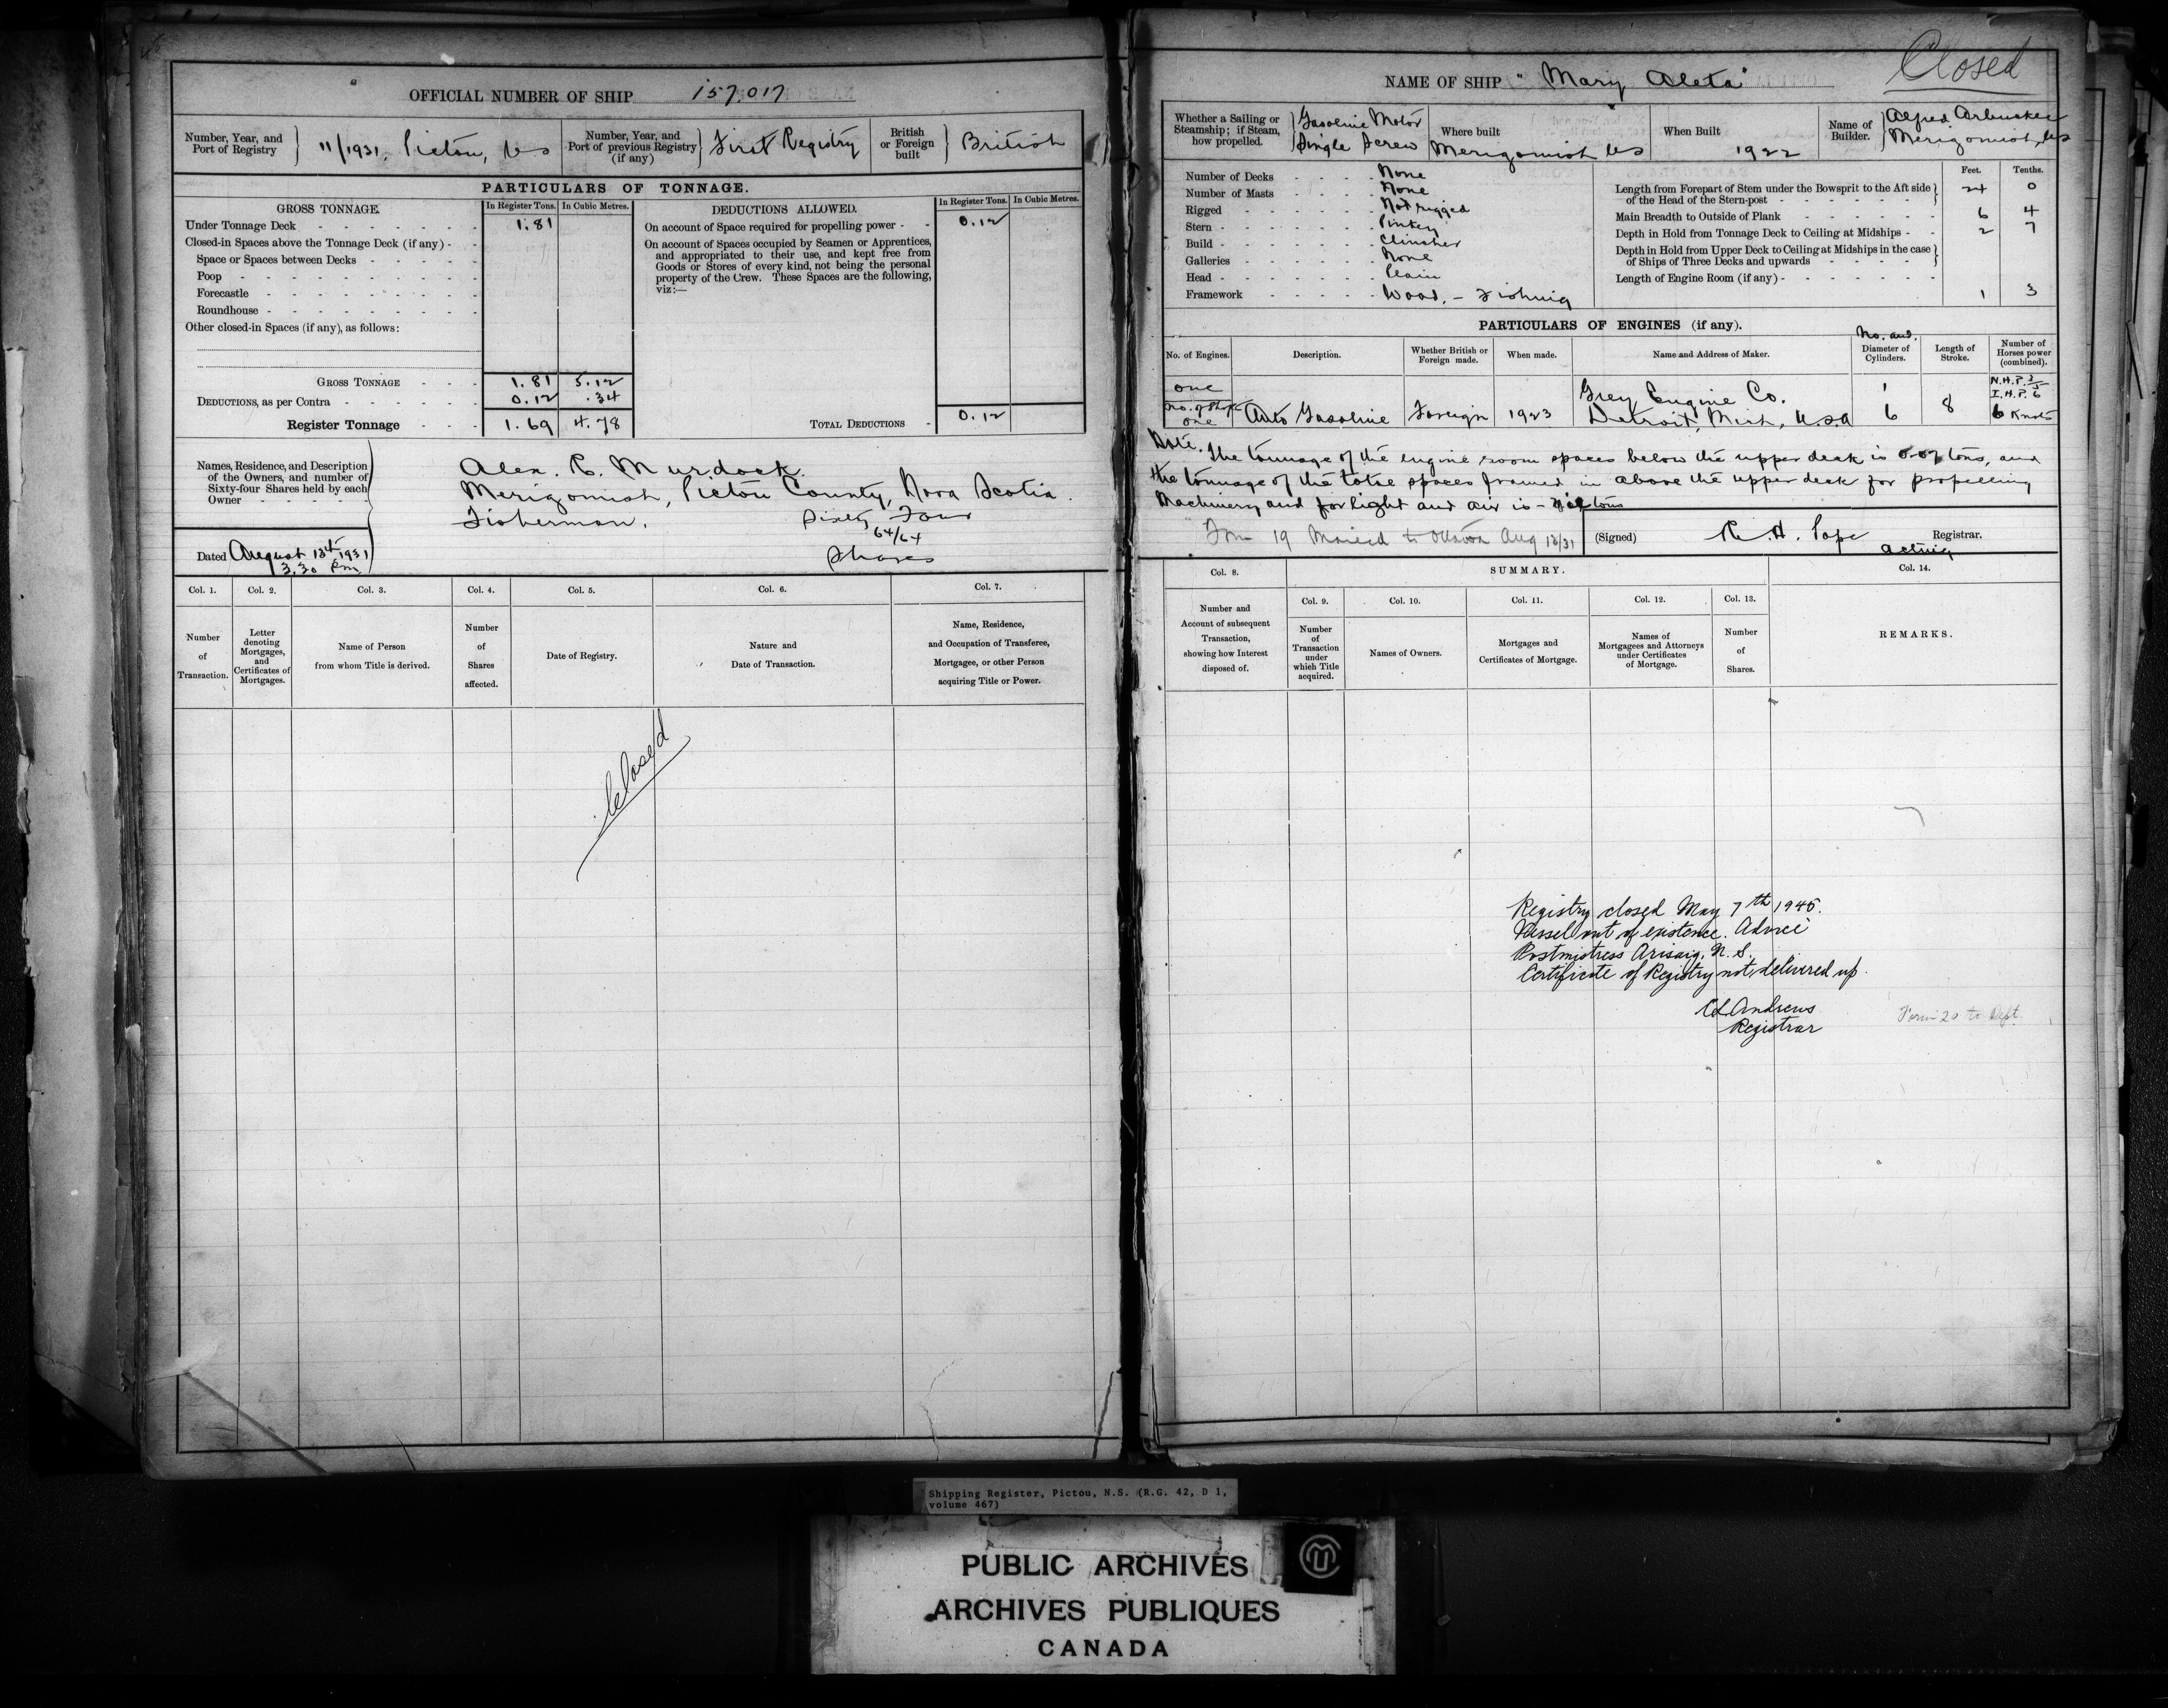 OFFICIAL NUMBER OF SHIP 157,017
Number, Year, and Port of Registry } 11/1931. Pictou, NS
Number, Year, and Port of previous Registry (if any) } First Registry
British or Foreign built } British
PARTICULARS OF TONNAGE.
GROSS TONNAGE. In Register Tons. In Cubic Metres.
Under Tonnage Deck 1.81
Closed-in Spaces above the Tonnage Deck (if any)
Space or Spaces between Decks
Poop
Forecastle
Roundhouse
Other closed-in Spaces (if any), as follows:
GROSS TONNAGE 1.81 5.12
DEDUCTIONS, as per Contra 0.12 .34
Register Tonnage 1.69 4.78
DEDUCTIONS ALLOWED. In Register Tons. In Cubic Metres.
On account of Space required for propelling power 0.12
On account of Spaces occupied by Seamen or Apprentices,
and appropriated to their use, and kept free from
Goods or Stores of every kind, not being the personal
property of the Crew. These Spaces are the following,
viz:—
TOTAL DEDUCTIONS 0.12
Names, Residence, and Description
of the Owners, and number of
Sixty-four Shares held by each
Owner
Alex. R. Murdock.
Merigomish, Pictou County, Nova Scotia.
Fisherman. Sixty Four
64/64
Shares
Dated August 13th 1931
3.30 Pm
Col. 1. Col. 2. Col. 3. Col. 4. Col. 5. Col. 6. Col. 7.
Number of Transaction.
Letter denoting Mortgages, and Certificates of Mortgages.
Name of Person from whom Title is derived.
Number of Shares affected.
Date of Registry.
Nature and Date of Transaction.
Name, Residence, and Occupation of Transferee, Mortgagee, or other Person acquiring Title or Power.
Closed
Closed
NAME OF SHIP "Mary Aleta"
Whether a Sailing or Steamship; if Steam, how propelled. } Gasoline Motor Single Screw
Where built Merigomish NS
When Built 1922
Name of Builder. } Alfred Arbuckle Merigomish, NS
Number of Decks None
Number of Masts None
Rigged Not rigged
Stern Pinkey
Build Clincher
Galleries None
Head Plain
Framework Wood. - Fishing
Feet. Tenths.
Length from Forepart of Stem under the Bowsprit to the Aft side of the Head of the Stern-post } 24 0
Main Breadth to Outside of Plank 6 4
Depth in Hold from Tonnage Deck to Ceiling at Midships 2 7
Depth in Hold from Upper Deck to Ceiling at Midships in the case of Ships of Three Decks and upwards }
Length of Engine Room (if any) 1 3
PARTICULARS OF ENGINES (if any).
No. of Engines. Description. Whether British or Foreign made. When made. Name and Address of Maker. No. and. Diameter of Cylinders. Length of Stroke. Number of Horses power (combined).
one
No. of Shafts
one Auto Gasoline Foreign 1923 Grey Engine Co. Detroit, Mich, U.S.A 1 6 8 N.H.P. I.H.P. 6 6 Knots
Note. The tonnage of the engine room spaces below the upper deck is 0.07 tons, and
the tonnage of the total spaces framed in above the upper deck for propelling
Machinery and for light and air is - nil tons
Form 19 Mailed to Ottawa Aug 13/31
(Signed) R. H. Pope Registrar.
acting
Col. 8. SUMMARY. Col. 14.
Col. 9. Col. 10. Col. 11. Col. 12. Col. 13.
Number and Account of subsequent Transaction, showing how Interest disposed of.
Number of Transaction under which Title acquired.
Names of Owners.
Mortgages and Certificates of Mortgage.
Names of Mortgagees and Attorneys under Certificates of Mortgage.
Number of Shares.
REMARKS.
Registry closed May 7th 1945.
Vessel out of existence. Advice
Postmistress Arisaig, N.S.
Certificate of Registry not delivered up.
Andrews
Registrar
Form 20 to Dept.
Shipping Register, Pictou, N.S. (R.G. 42, D 1,
volume 467)
PUBLIC ARCHIVES
ARCHIVES PUBLIQUES
CANADA